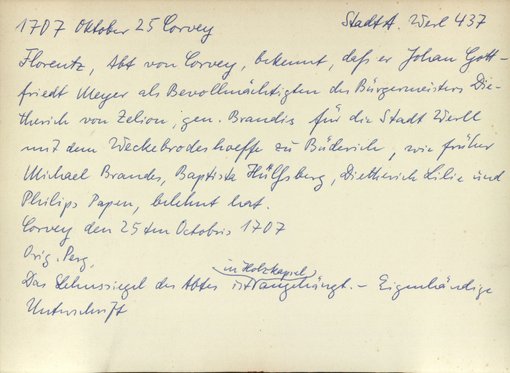 1707 Oktober 25 Corvey StadtA. Werl 437
Florentz, Abt von Corvey, bekennt, daß er Johan Gott-
friedt Meyer als Bevollmächtigten des Bürgermeisters Die-
therich von Zelion, gen. Brandis für die Stadt Werll
mit dem Weckebrodeshoeffe zu Büderich, wie früher
Michael Brandes, Baptista Hülfsberg, Dietherich Lilie und
Philips Papen, belehnt hat.
Corvey den 25ten Octobris 1707
Orig. Perg.
Das Lehnssiegel des Abtes ist in Holzkapsel angehängt. – Eigenhändige
Unterschrift